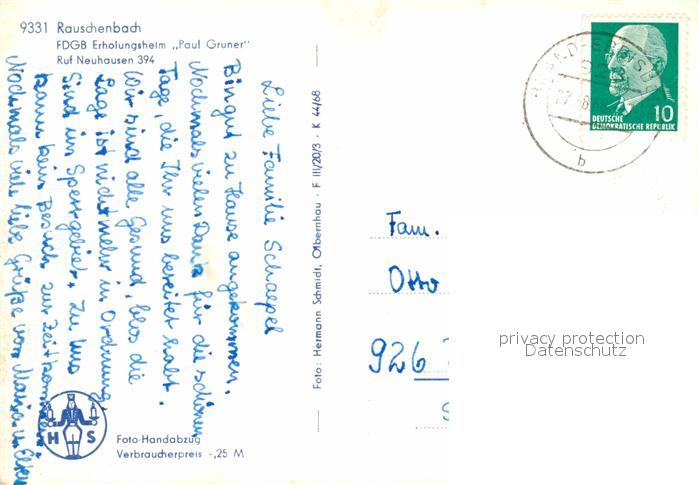 9331 Rauschenbach
FDGB Erholungsheim „Paul Gruner"
Ruf Neuhausen 394
Liebe Familie Schaepel
Bin gut zu Hause angekommen.
Nochmals vielen Dank für die schönen
Tage, die Ihr uns bereitet habt.
Wir sind alle Gesund, blos die
Lage ist nicht mehr in Ordnung
Sind im Sperrgebiet. Zu uns
kann kein Besuch zur Zeit kommen.
Nochmals viele liebe Grüße von
H S
Foto-Handabzug
Verbraucherpreis -,25 M
Foto: Hermann Schmidt, Olbernhau · F III/20/3 · K 44/68
10
DEUTSCHE
DEMOKRATISCHE REPUBLIK
b
Fam.
Otto
926
privacy protection
Datenschutz